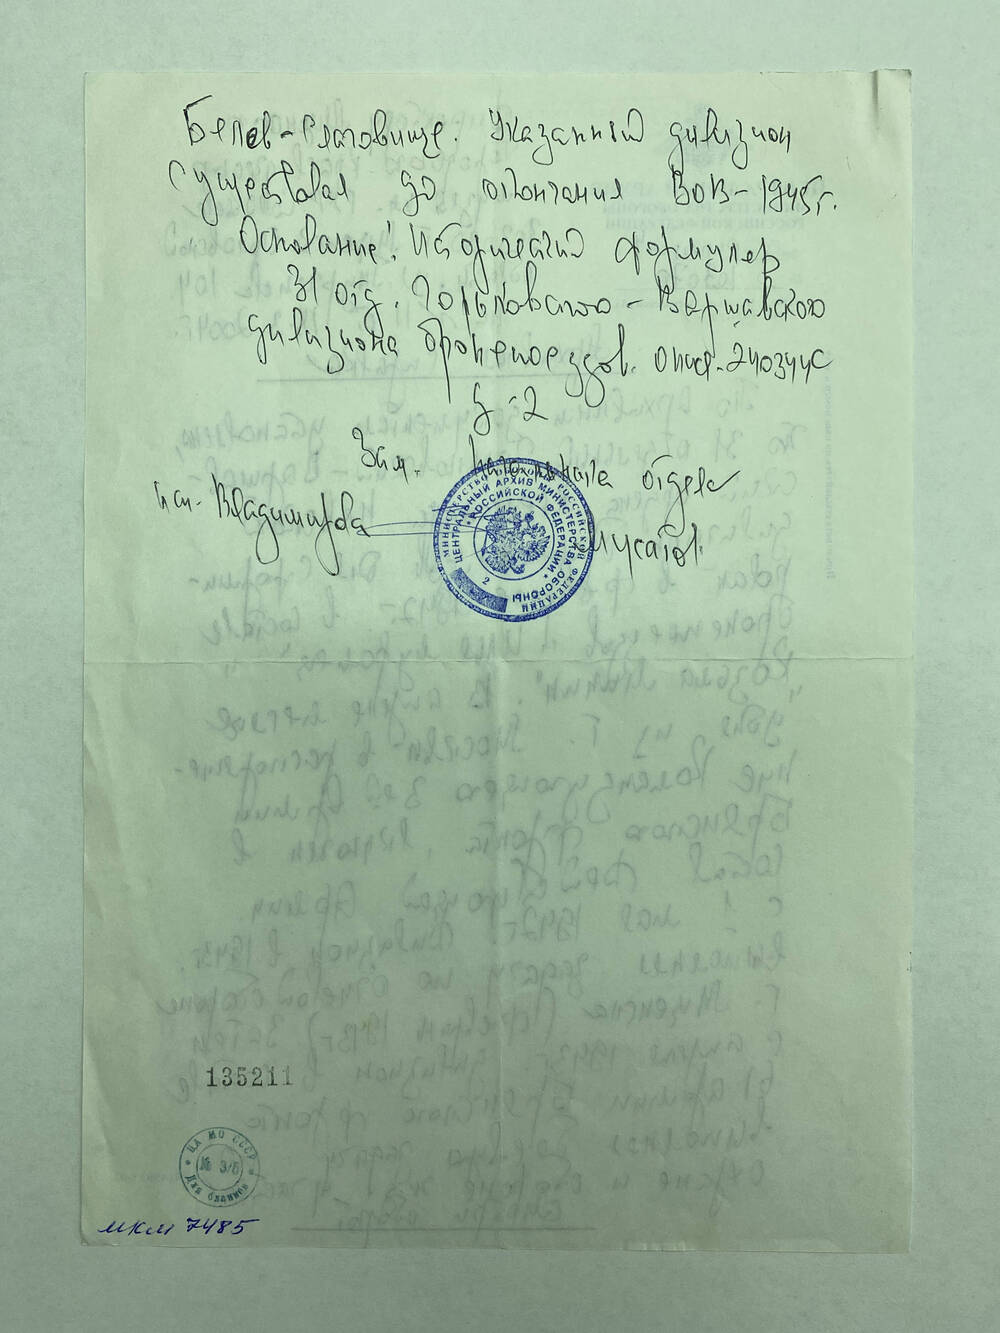 Белев-Слаговище. Указанный дивизион
существовал до окончания ВОВ-1945г.
Основание: Исторический формуляр
31 отд. Горьковского-Варшавского
дивизиона бронепоездов. опись-210374с
д-2
Зам. начальника отдела
исп. Владимирова Мусатов
МИНИСТЕРСТВО ОБОРОНЫ РОССИЙСКОЙ ФЕДЕРАЦИИ
ЦЕНТРАЛЬНЫЙ АРХИВ МИНИСТЕРСТВА ОБОРОНЫ
РОССИЙСКОЙ ФЕДЕРАЦИИ
2
135211
ЦА МО СССР
№ 3/6
Для бланков
МКМ 7485